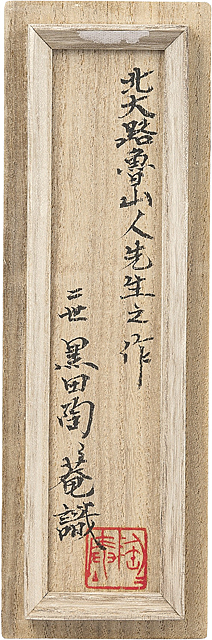 北大路魯山人先生之作
二世 黒田陶々菴識